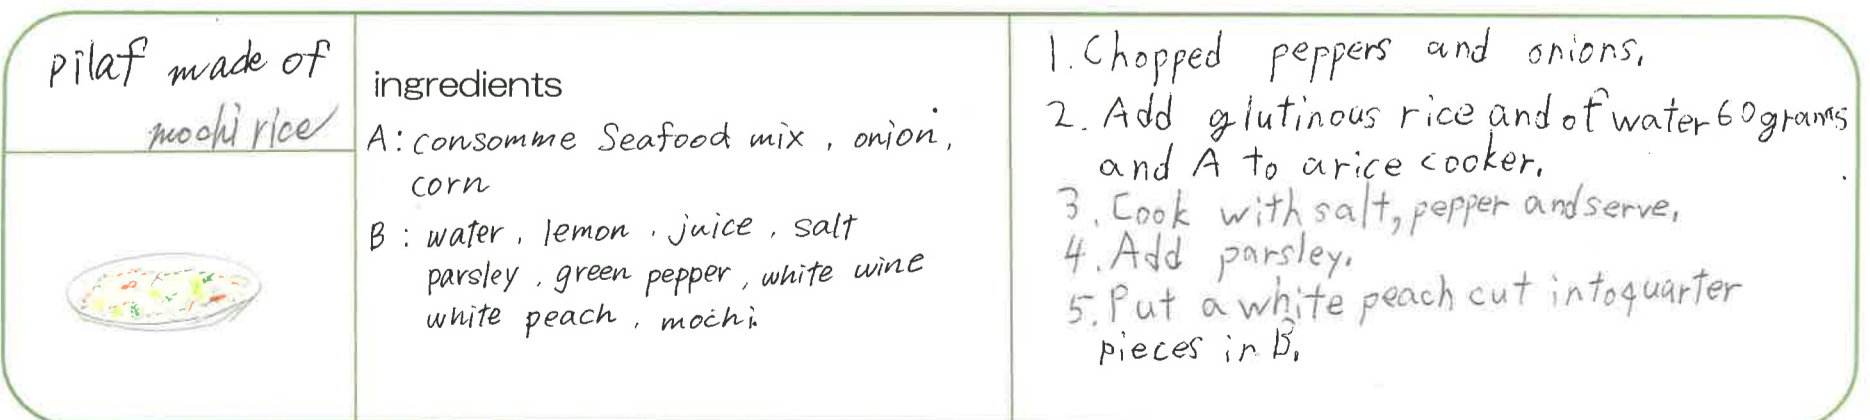 pilaf made of
mochi rice
ingredients
A: consomme Seafood mix, onion,
corn
B: water, lemon, juice, salt
parsley, green pepper, white wine
white peach, mochi.
1. Chopped peppers and onions.
2. Add glutinous rice and of water 60 grams
and A to a rice cooker.
3. Cook with salt, pepper and serve.
4. Add parsley.
5. Put a white peach cut into quarter
pieces in B.